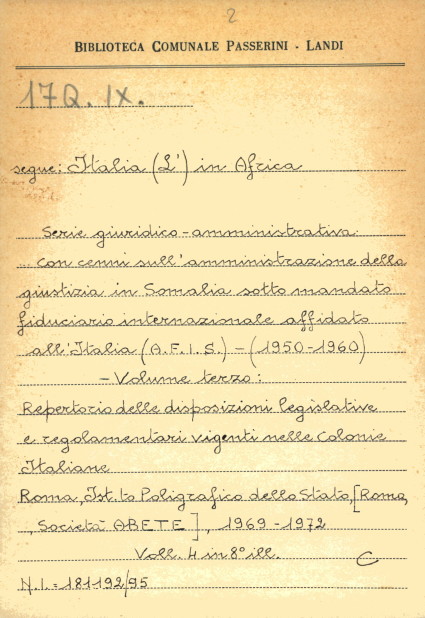 2
BIBLIOTECA COMUNALE PASSERINI - LANDI
17Q. IX.
segue: Italia (L') in Africa
Serie giuridico-amministrativa:
... con cenni sull'amministrazione della
giustizia in Somalia sotto mandato
fiduciario internazionale affidato
all'Italia (A.F.I.S.) - (1950-1960)
- Volume terzo:
Repertorio delle disposizioni legislative
e regolamentari vigenti nelle Colonie
Italiane
Roma, Ist.to Poligrafico dello Stato, [Roma,
, Società ABETE], 1969-1972
Voll. 4 in 8° ill. C
N.I. = 181192/95